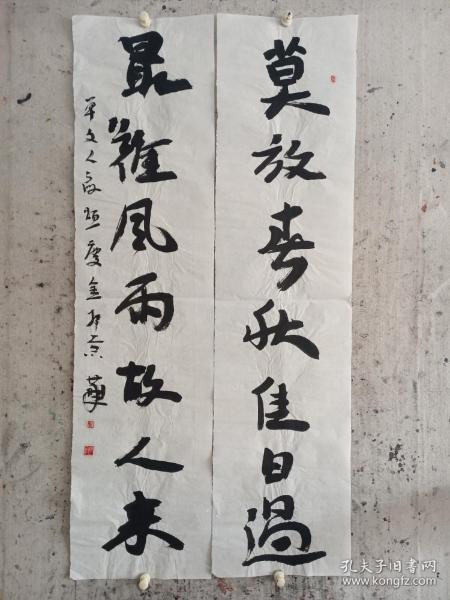 莫放春秋佳日過
最難風雨故人來
孔夫子旧书网
www.kongfz.com